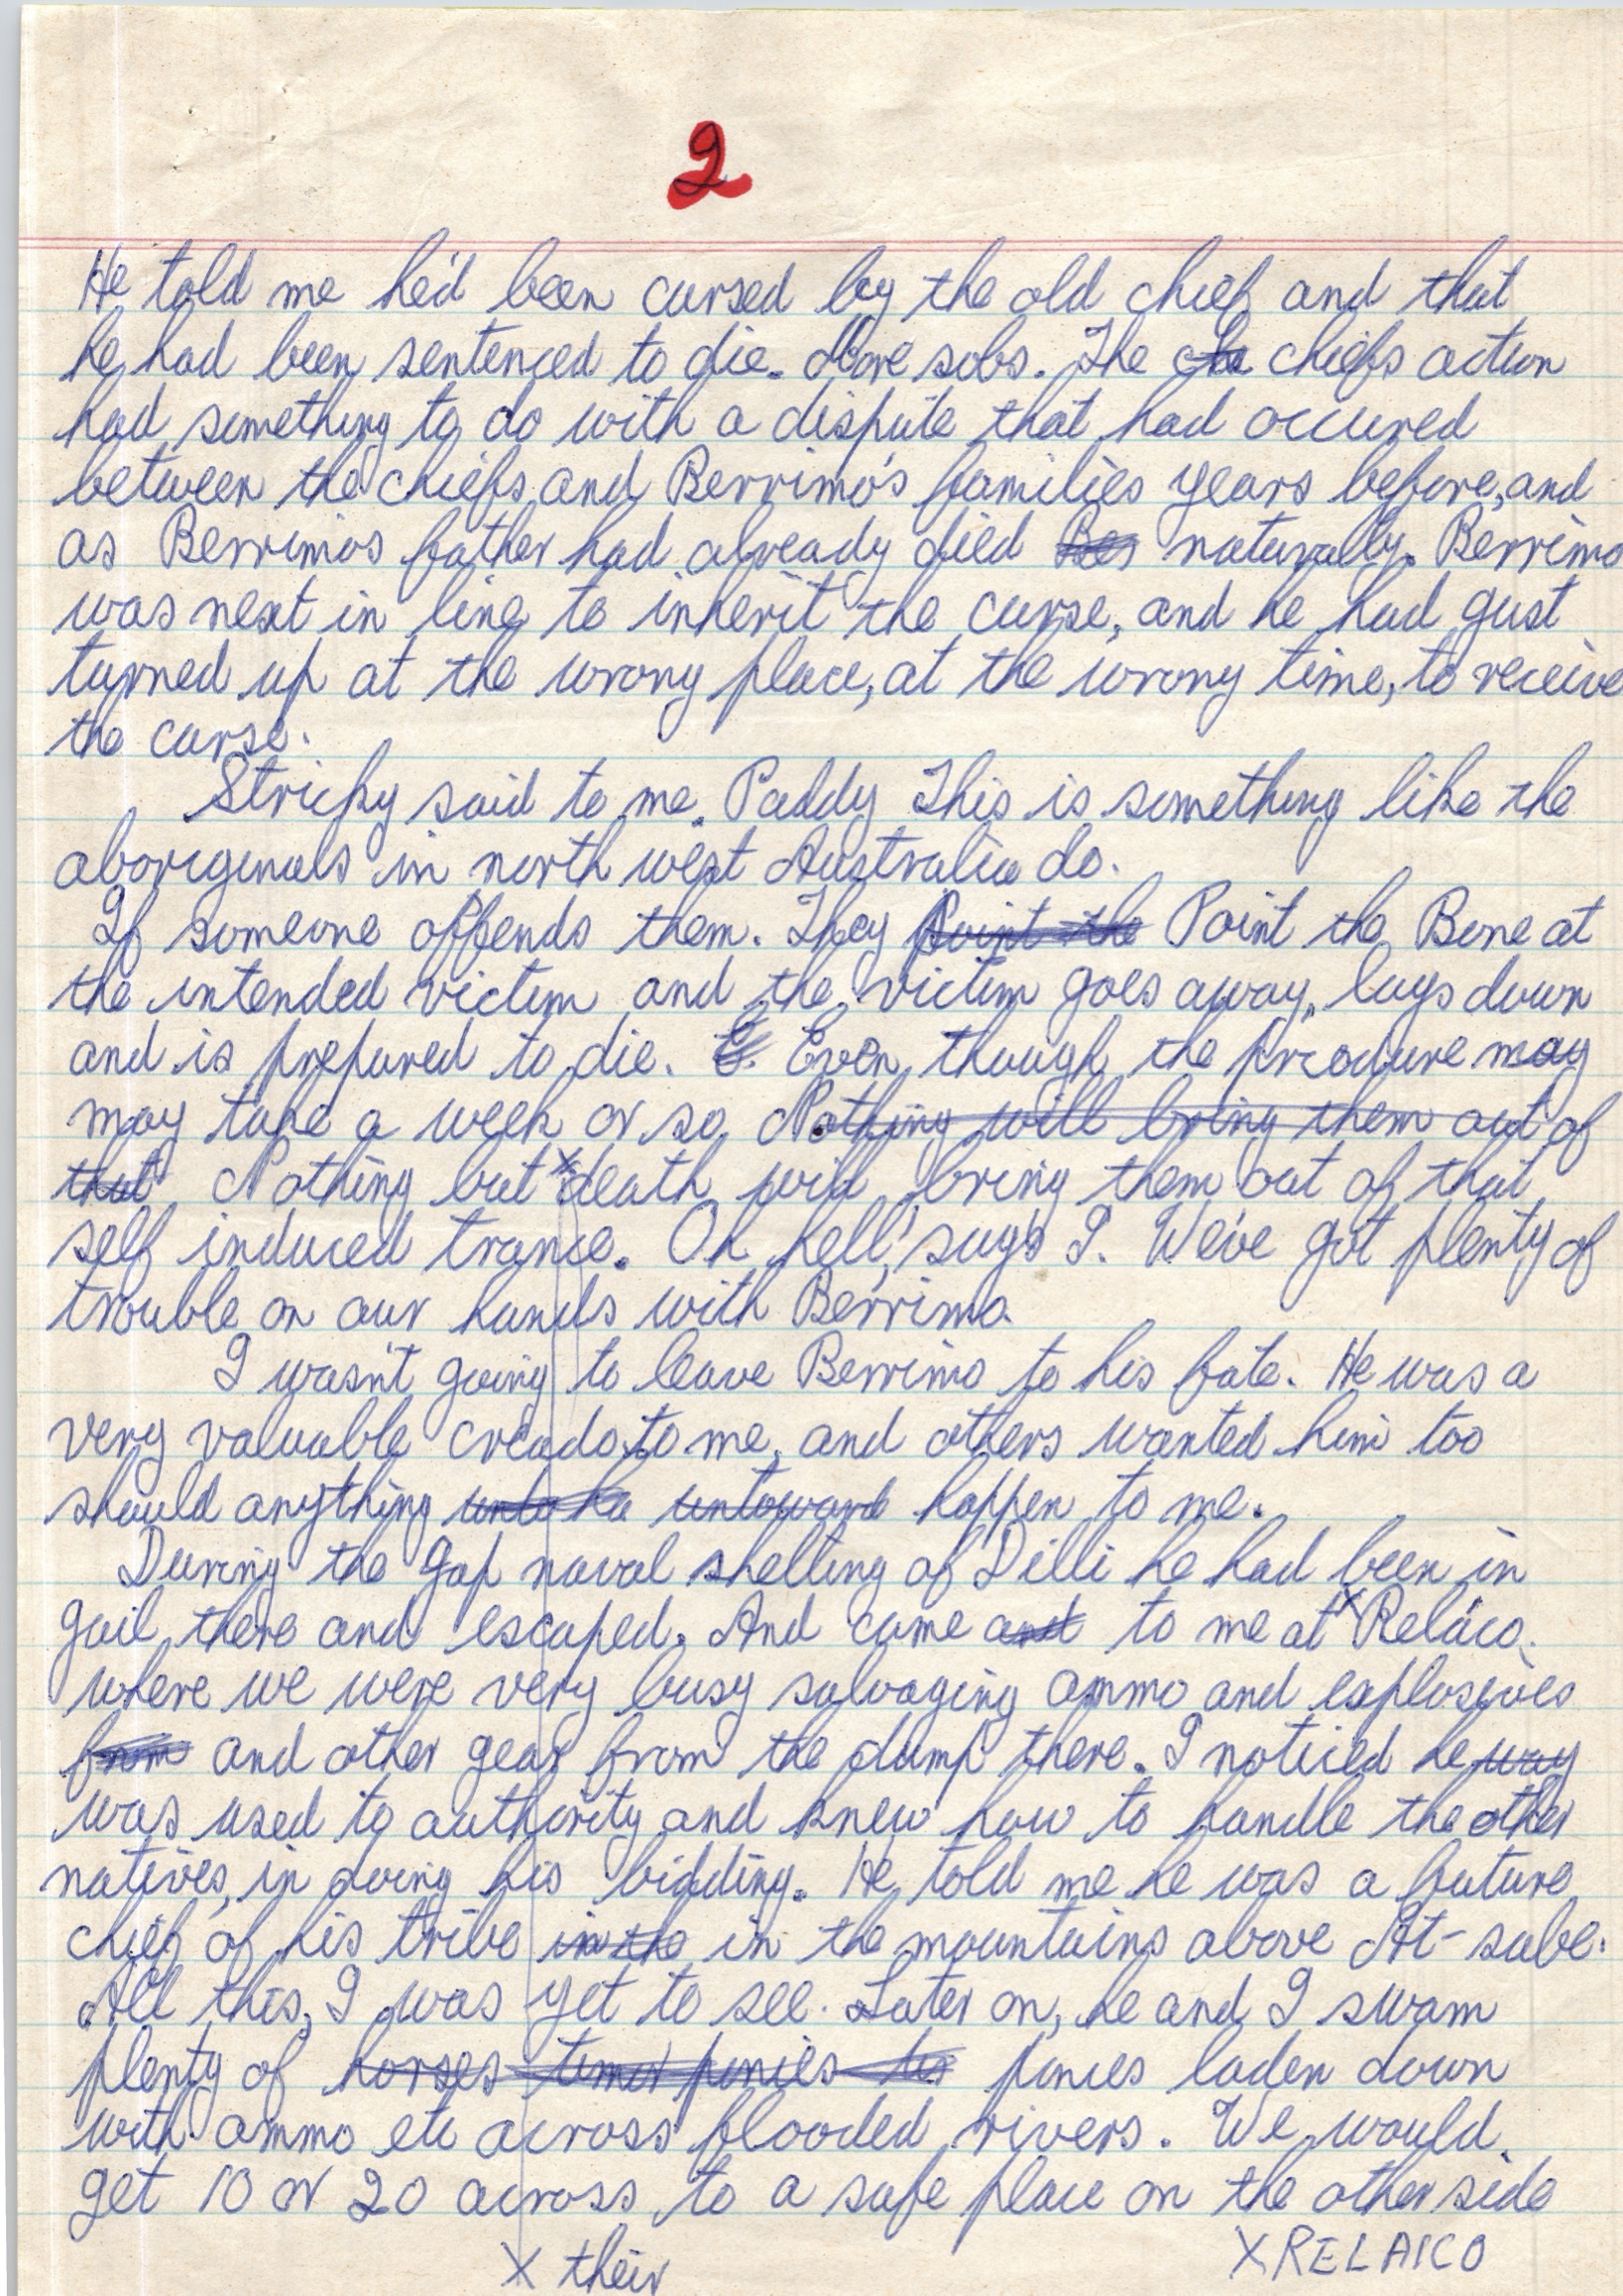 2
He told me he'd been cursed by the old chief and that
he had been sentenced to die. More sobs. The che chiefs action
had something to do with a dispute that had occured
between the chiefs and Berrimo's families years before, and
as Berrimos father had already died Ber naturally. Berrimo
was next in line to inherit the curse, and he had just
turned up at the wrong place, at the wrong time, to receive
the curse.
Stricky said to me. Paddy This is something like the
aboriginals in north west Australia do.
If someone offends them. They Point the Point the Bone at
the intended victim and the victim goes away, lays down
and is prepared to die. E. Even though the procdure may
may take a week or so Nothing will bring them out of
that Nothing but x death will bring them out of that
self induced trance. Oh hell, says I. We've got plenty of
trouble on our hands with Berrimo.
I wasn't going to leave Berrimo to his fate. He was a
very valuable creado to me, and others wanted him too
should anything unto untoward happen to me.
During the Jap naval shelling of Dilli he had been in
gail there and escaped. And came and to me at x Relaco.
where we were very busy salvaging ammo and explosives
from and other gear from the dump there. I noticed he way
was used to authority and knew how to handle the other
natives, in doing his bidding. He told me he was a future
chief of his tribe in the in the mountains above At-sabe.
All this, I was yet to see. Later on, he and I swam
plenty of horses timor ponies to ponies laden down
with ammo etc across flooded rivers. We would
get 10 or 20 across to a safe place on the other side
X their
X RELAICO